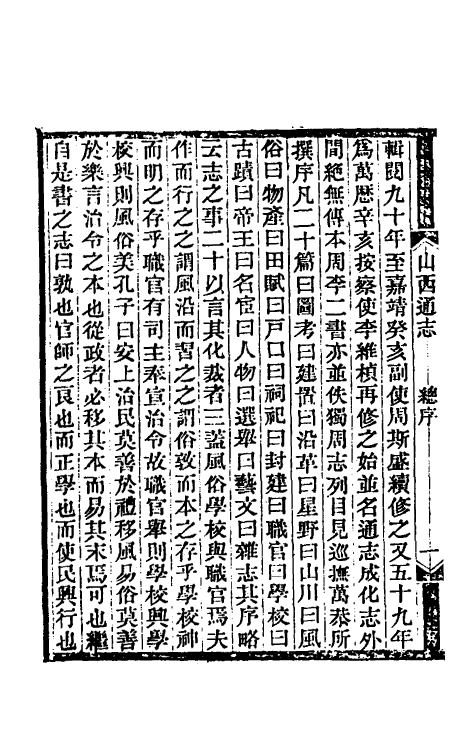 山西通志 總序 一
輯閱九十年至嘉靖癸亥副使周斯盛續修之又五十九年
爲萬歷辛亥按察使李維楨再修之始並名通志成化志外
間絕無傳本周李二書亦並佚獨周志列目見巡撫萬恭所
撰序凡二十篇曰圖考曰建置曰沿革曰星野曰山川曰風
俗曰物產曰田賦曰戸口曰祠祀曰封建曰職官曰學校曰
古蹟曰帝王曰名宦曰人物曰選舉曰藝文曰雜志其序略
云志之事二十以言其化裁者三蓋風俗學校與職官焉夫
作而行之之謂風沿而習之之謂俗敦而本之存乎學校神
而明之存乎職官有司主奉宣治令故職官舉則學校興學
校興則風俗美孔子曰安上治民莫善於禮移風易俗莫善
於樂言治令之本也從政者必移其本而易其末焉可也繼
自是書之志曰孰也官師之良也而正學也而使民興行也